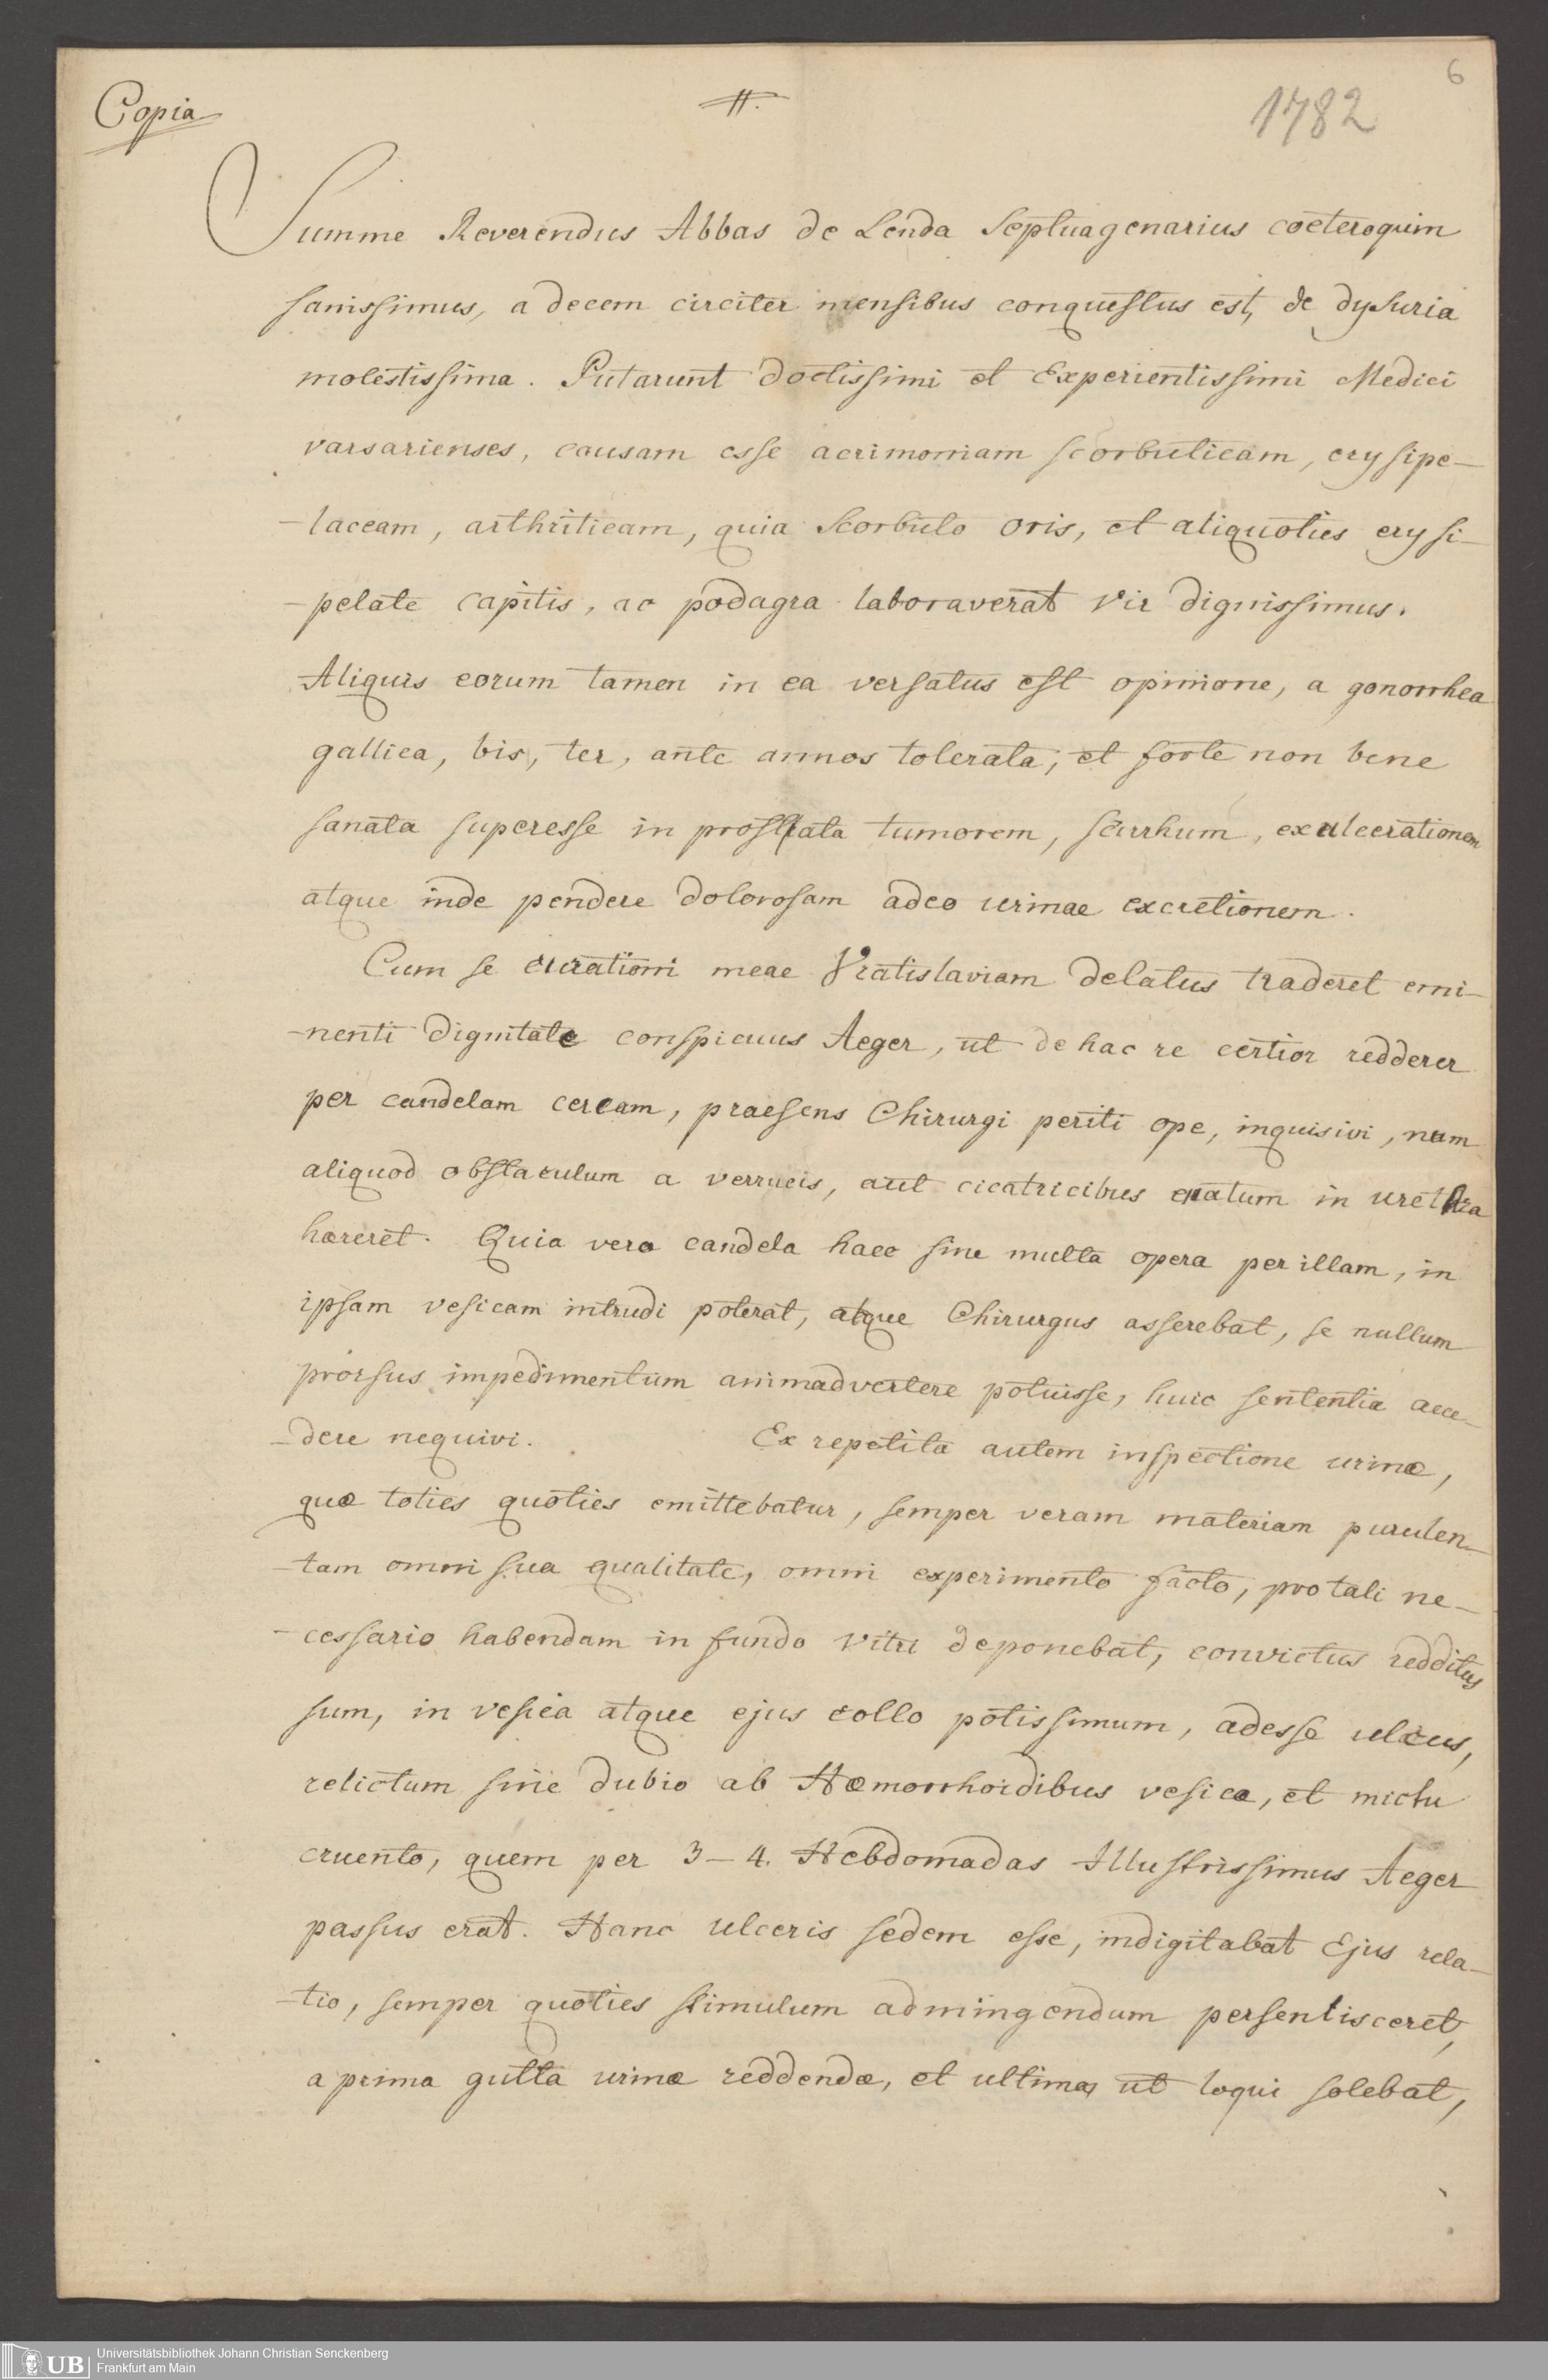 6
Copia
#.
1782
Summe Reverendus Abbas de Lenda Septuagenarius coeteroquim
sanissimus, a decem circiter mensibus conquestus est, de dysuria
molestissima. Putarunt doctissimi et Experientissimi Medici
varsarienses, causam esse acrimoniam scorbuticam, erysipe-
-laceam, arthriticam, quia Scorbuto oris, et aliquoties erysi-
-pelate capitis, ac podagra laboraverat Vir dignissimus.
Aliquis eorum tamen in ea versatus est opinione, a gonorrhea
gallica, bis, ter, ante annos tolerata; et forte non bene
sanata superesse in prostata tumorem, scirrhum, exulcerationem
atque inde pendere dolorosam adeo urinae excretionem.
Cum se curationi meae Vratislaviam delatus traderet emi-
-nenti dignitate conspicuus Aeger, ut de hac re certior redderer
per candelam ceream, praesens Chirurgi periti ope, inquisivi, num
aliquod obstaculum a verrucis, aut cicatricibus enatum in urethra
hæreret. Quia vero candela haec sine multa opera per illam, in
ipsam vesicam intrudi poterat, atque Chirurgus asserebat, se nullum
prorsus impedimentum animadvertere potuisse, huic sententiæ acce-
-dere nequivi. Ex repetita autem inspectione urinæ,
quæ toties quoties emittebatur, semper veram materiam purulen-
-tam omni sua qualitate, omni experimento facto, pro tali ne-
-cessario habendam in fundo vitri deponebat, convictus redditus
sum, in vesica atque ejus collo potissimum, adesse ulcus,
relictum sine dubio ab Hæmorrhoidibus vesicæ, et mictu
cruento, quem per 3-4. Hebdomadas Illustrissimus Aeger
passus erat. Hanc ulceris sedem esse, indigitabat Ejus rela-
-tio, semper quoties stimulum ad mingendum persentisceret,
a prima gutta urinæ reddendæ, et ultima, ut loqui solebat,
UB
Universitätsbibliothek Johann Christian Senckenberg
Frankfurt am Main